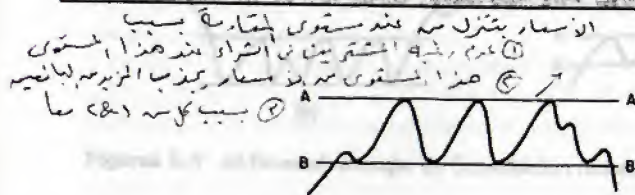 الأسعار بتنزل من عند مستوى المقاومة بسبب
① عدم رغبة المشترين في الشراء عند هذا المستوى
② هذا المستوى من الأسعار يجذب المزيد من البائعين
③ بسبب كل من (1&2) معاً
A A
B B